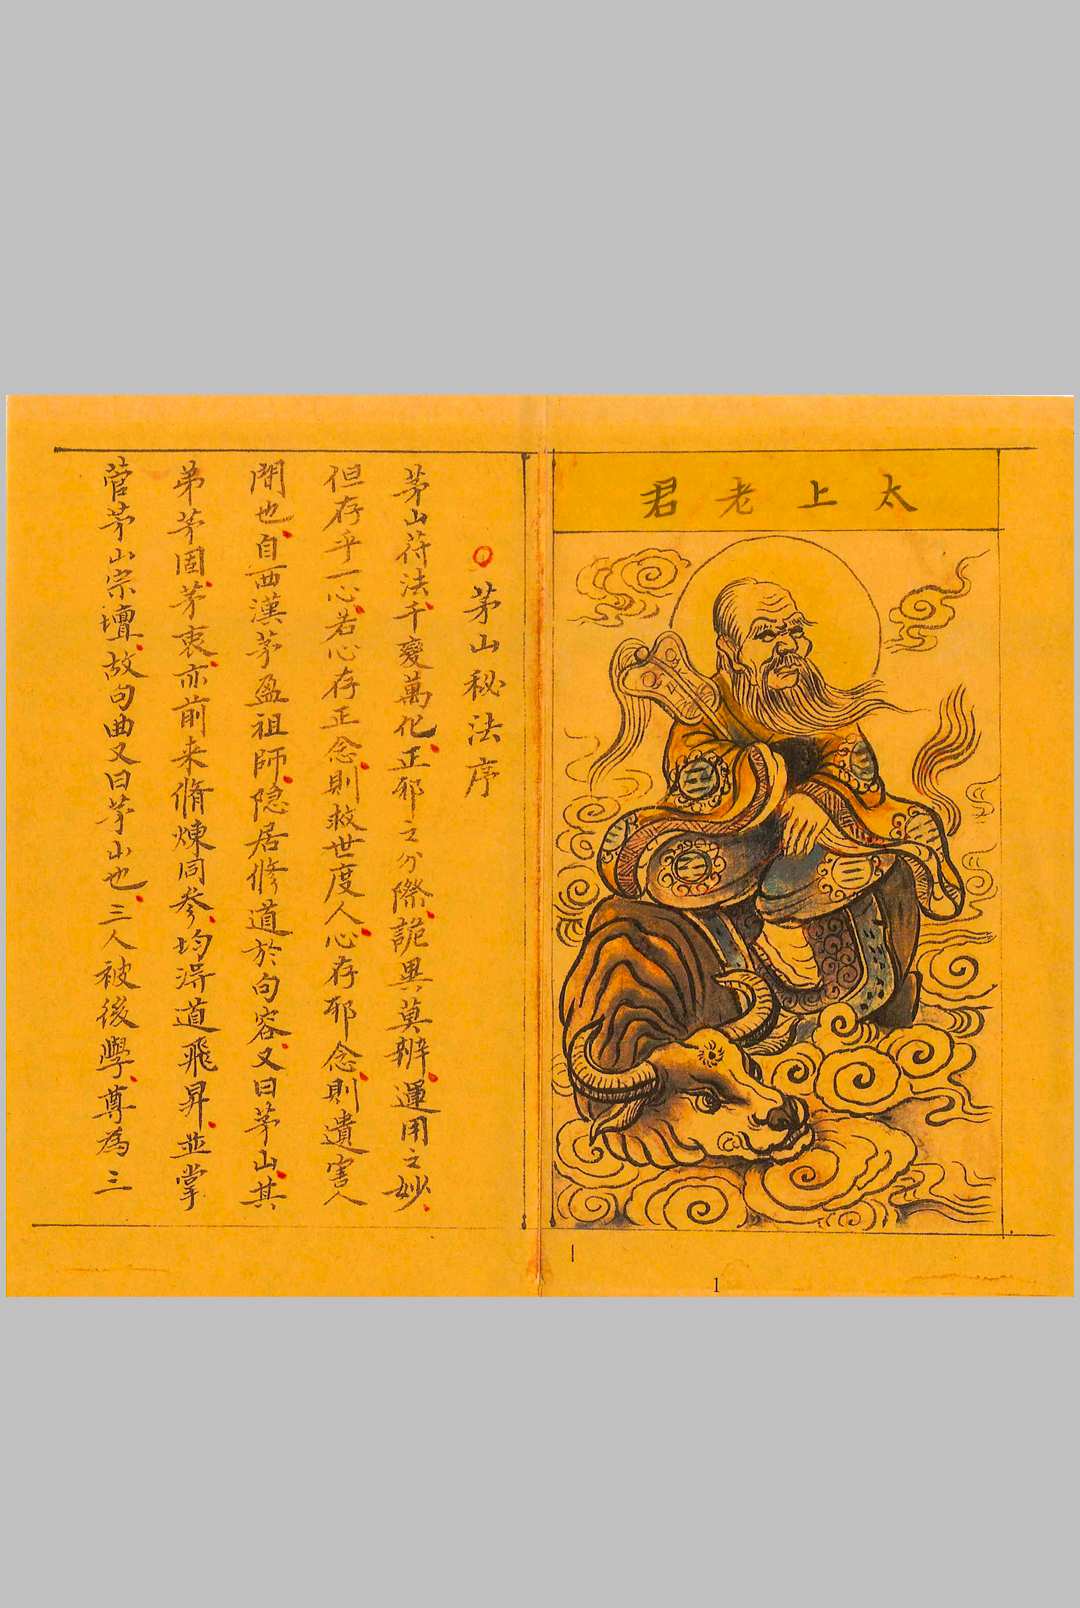 太上老君
茅山秘法序
茅山符法千變萬化正邪之分際詭異莫辦運用之妙
但存乎一心若心存正念則救世度人心存邪念則遺害人
間也自西漢茅盈祖師隐居修道於句容又曰茅山其
弟茅固茅衷亦前来脩煉同参均得道飛昇並掌
管茅山宗壇故句曲又曰茅山也三人被後學尊為三
1
1